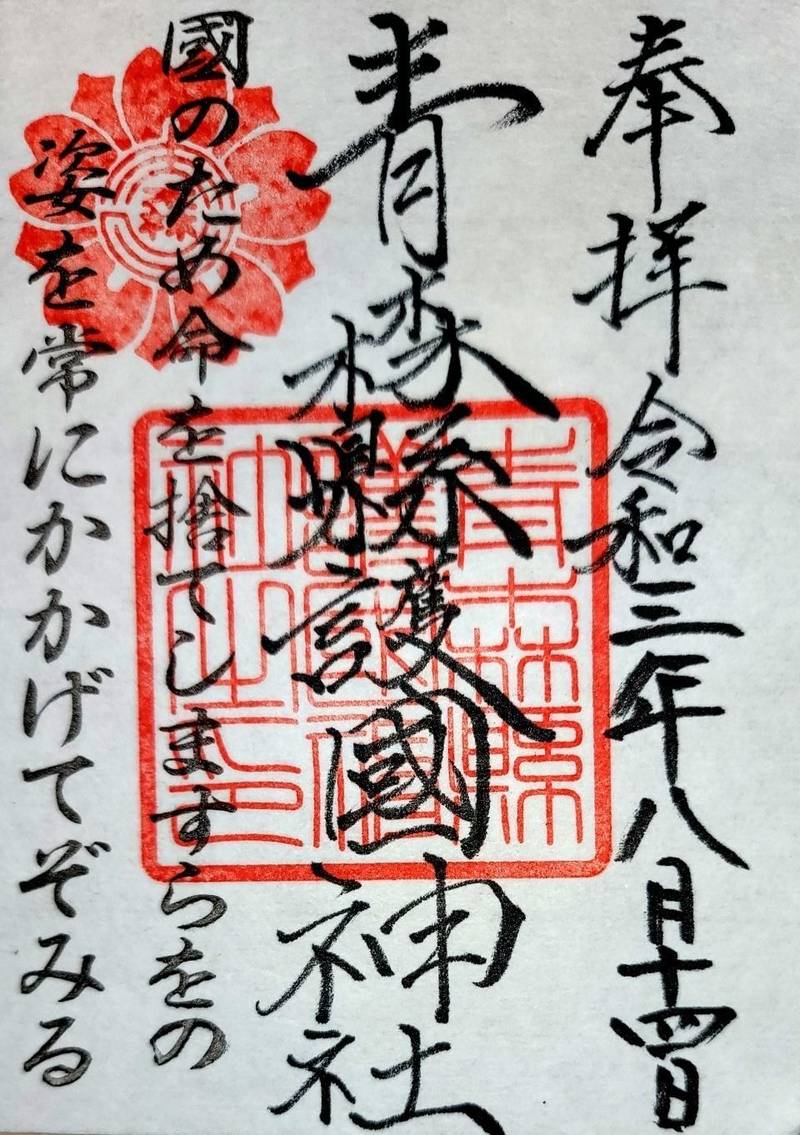 奉拝 令和三年八月十四日
青森縣護國神社
國のため命を捨てしますらをの
姿を常にかかげてぞみる
青森縣
護國神
社之印